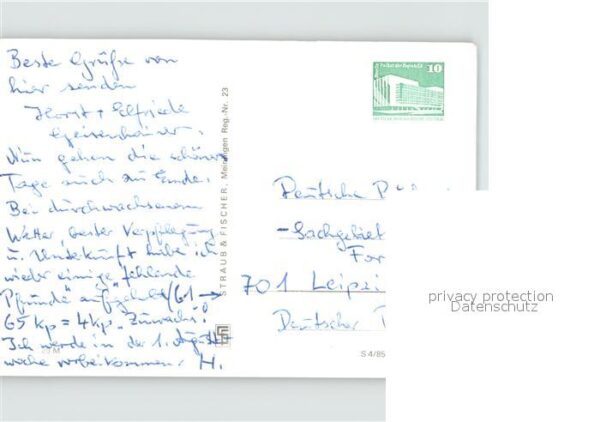 Beste Grüße von
hier senden
Horst + Elfriede
Nun gehen die schönen
Tage auch zu Ende.
Bei durchwachsenem
Wetter, bester Verpflegung
u. Unterkunft habe ich
wieder einige "fehlende
Pfunde" aufgeholt (61 →
65 kp = 4 kp Zuwachs!
Ich werde in der 1. August
woche vorbeikommen. H.
STRAUB & FISCHER, Meiningen Reg.-Nr. 23
10
Palast der Republik
Deutsche
-Sachgebiet
For
701 Leipzi
Deutscher
S 4/85
M
privacy protection
Datenschutz